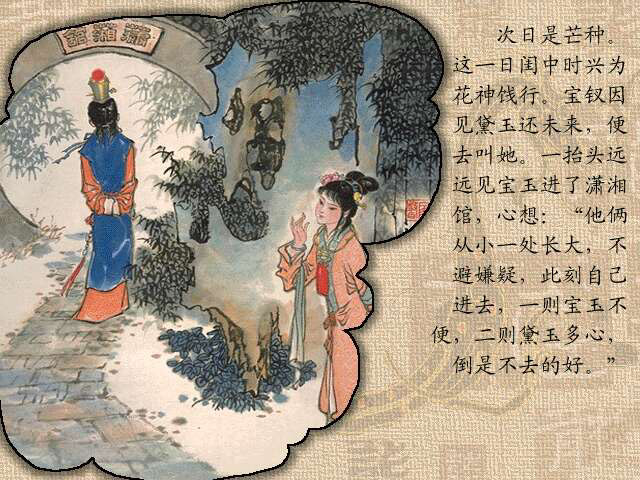 潇湘館
次日是芒种。
这一日闺中时兴为
花神饯行。宝钗因
见黛玉还未来，便
去叫她。一抬头远
远见宝玉进了潇湘
馆，心想：“他俩
从小一处长大，不
避嫌疑，此刻自己
进去，一则宝玉不
便，二则黛玉多心，
倒是不去的好。”